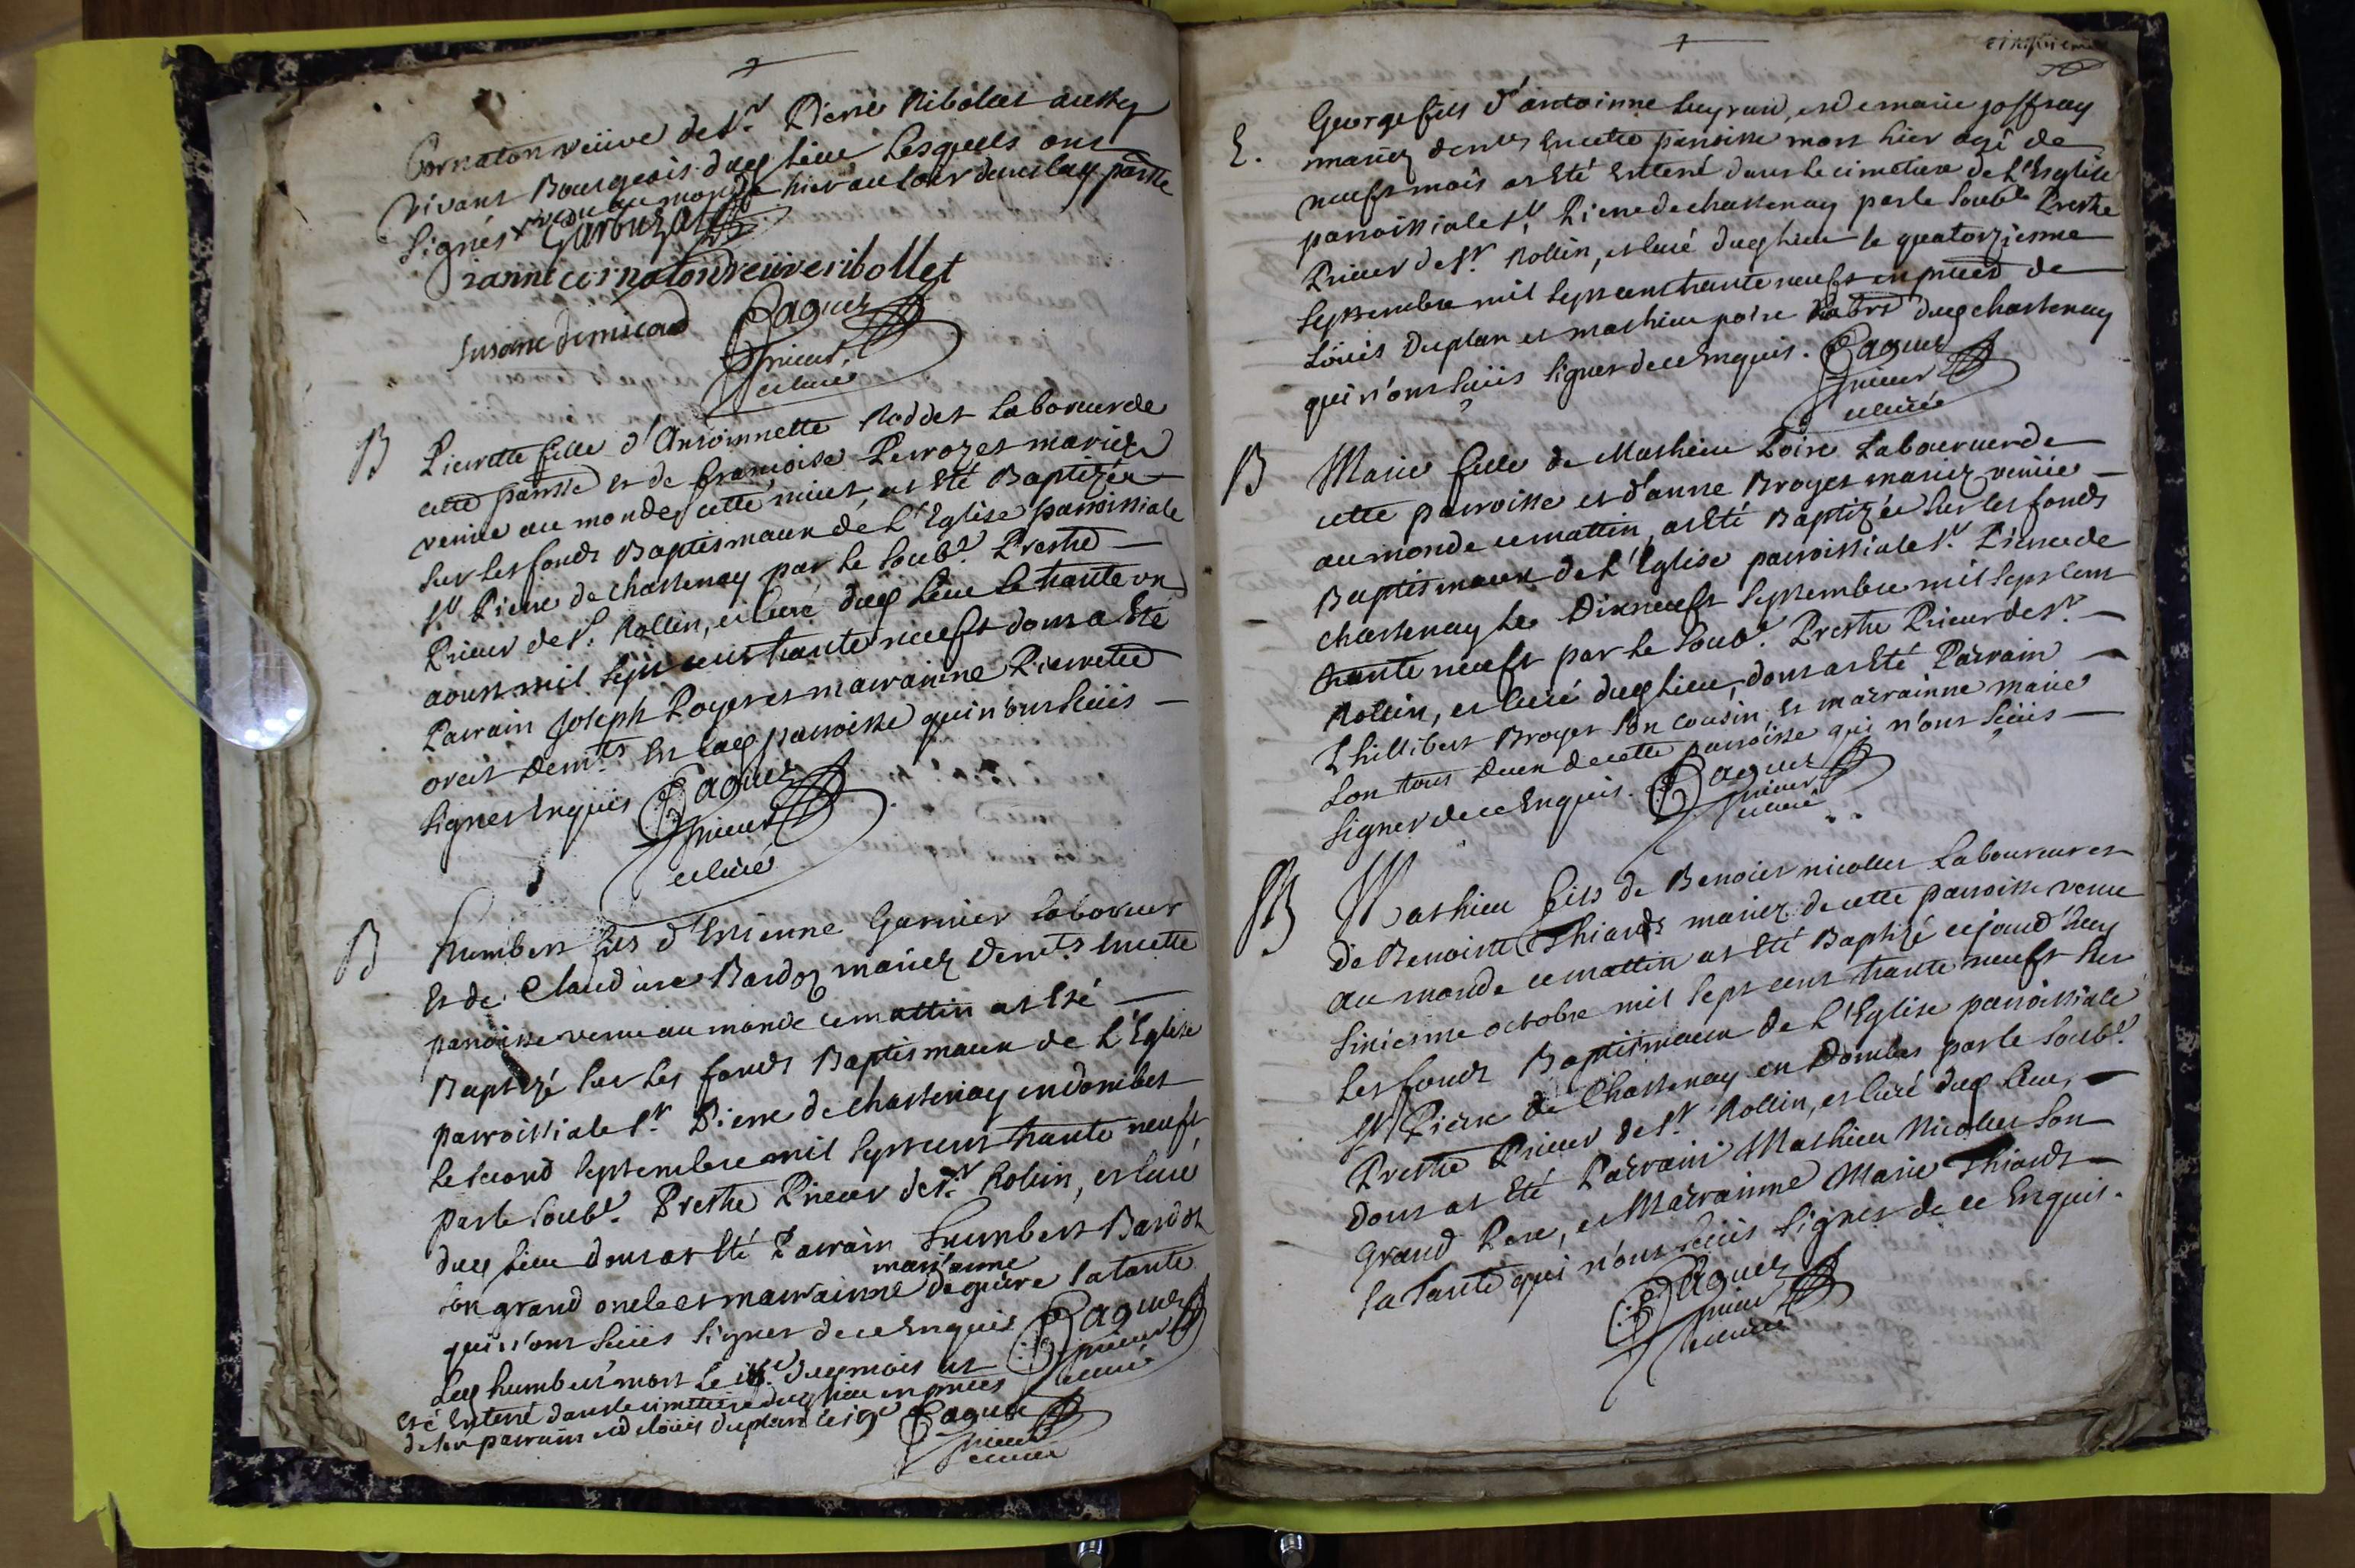 Cornaton veuve de Sr. Pierre Ribolet
vivant Bourgeois dud lieu Lesquels ont
signés venu au monde hier au soir dans lad parsse
Garbuzat
Janne cornaton veuve ribollet
Susanne
Paquez
prieur
et curé
B
Pierrette fille d'Antoinnette Noddet Laboreur de
cette parsse et de françoise Perrozet mariez
venue au monde cette nuict, at Eté Baptizée
sur les fonds Baptismaux de L'Eglise parroissiale
St. Pierre de chastenay par le soubt. Prestre
Prieur de St. Rollin, et Curé dud Lieu le trante un
aoust mil sept cent trante neuft dont a Eté
Parrain Joseph Poyer et marrainne Pierrette
demts. En lad parroisse qui n'ont sçüis
signer Enquis
Paquez
prieur
et curé
B
humbert fils d'Estienne Garnier Laboreur
Et de Claudine Bardoz mariez demts. En cette
parroisse venu au monde ce mattin at Eté
Baptizé sur les fonds Baptismaux de L'Eglise
parroissiale St. Pierre de chastenay en dombes
Le second septembre mil sept cent trante neuft
par le soubt. Prestre Prieur de St. Rollin, et Curé
dud Lieu dont at Eté Parrain humbert Bardoz
marianne
son grand oncle et marrainne deguire sa tante
qui n'ont sçüis signer de ce Enquis
Paquez
prieur
et curé
Led humbert mort le dud mois at
Eté Enterré dans le cimetière dud lieu en pnces
de son parrain et de Loüis duplan le
Paquez
prieur
et curé
cinquieme
E.
George fils d'antoinne Luyraud, et de marie joffray
mariez demts En cette parroisse mort hier agé de
neuft mois at Eté Enterré dans le cimetière de L'Eglise
parroissiale St. Pierre de chastenay par le soubt. Prestre
Prieur de St. Rollin, et Curé dud lieu le quatorziesme
Septembre mil sept cent trante neuft en pnces de
Loüis Duplan et mathieu poire dud chastenay
qui n'ont sçüis signer de ce Enquis.
Paquez
prieur
et curé
B
Marie fille de Mathieu Poire Laboureur de
cette parroisse et d'anne Broyer mariez venüe
au monde ce mattin, at Eté Baptizée sur les fonds
Baptismaux de L'Eglise parroissiale St. Pierre de
chastenay Le Dixneuft septembre mil sept cent
trante neuft par le soubt. Prestre Prieur de St.
Rollin, et Curé dud Lieu, dont at Eté Parrain
Phillibert Broyer son cousin, et marrainne marie
Lon tous deux de cette parroisse qui n'ont sçüis
signer de ce Enquis.
Paquez
prieur
et curé
B
Mathieu fils de Benoist nicollet Laboureur et
de Benoiste Thiards mariez de cette parroisse venu
au monde ce mattin at Eté Baptizé cejourd'huy
sixiesme octobre mil sept cent trante neuft sur
Les fonds Baptismaux de L'Eglise parroissiale
St. Pierre de Chastenay en Dombes par le soubt.
Prestre Prieur de St. Rollin, et Curé dud Lieu,
dont at Eté Parrain Mathieu Nicollet son
Grand Pere, et Marrainne Marie Thiards
sa tante qui n'ont sçüis signer de ce Enquis.
Paquez
prieur
et curé